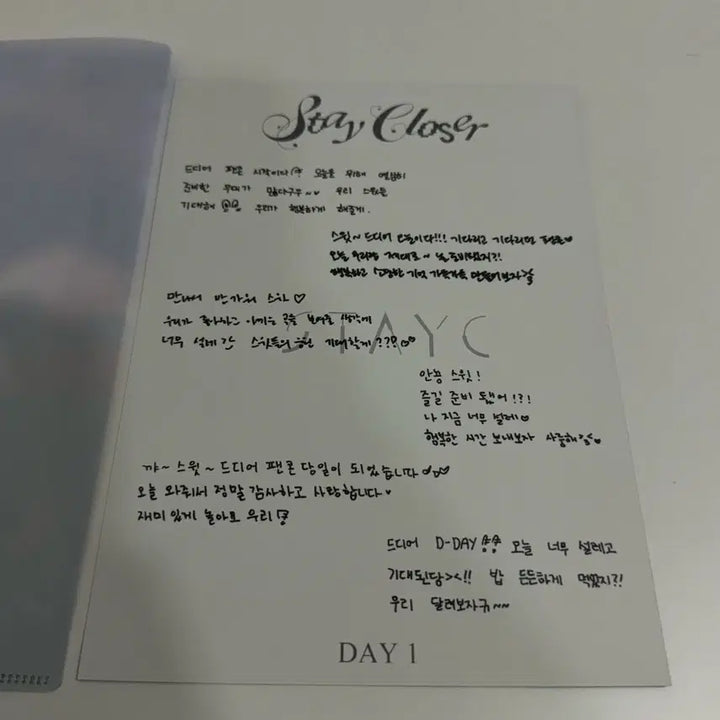 Stay Closer
드디어 팬콘 시작이다 오늘을 위해 열심히
준비한 우리가 왔다구우~♡ 우리 스윗들
기대해 우리가 행복하게 해줄게.
스윗~ 드디어 오늘이다!!! 기다리고 기다리던 팬콘♡
오늘 우리랑 제대로~ 놀 준비됐지?!
행복하고 소중한 기억 가득가득 만들어보자
만나서 반가워 스윗 ♡
우리가 좋아하고 아끼는 곡을 보여줄 생각에
너무 설레 스윗들의 응원 기대할게???
STAYC
안뇽 스윗!
즐길 준비 됐어!?!
나 지금 너무 설레♡
행복한 시간 보내보자 사랑해
꺄~ 스윗~ 드디어 팬콘 당일이 되었습니다
오늘 와줘서 정말 감사하고 사랑합니다♥
재미있게 놀아요 우리
드디어 D-DAY 오늘 너무 설레고
기대된당><!! 밥 든든하게 먹었지?!
우리 달려보자규~~
DAY 1